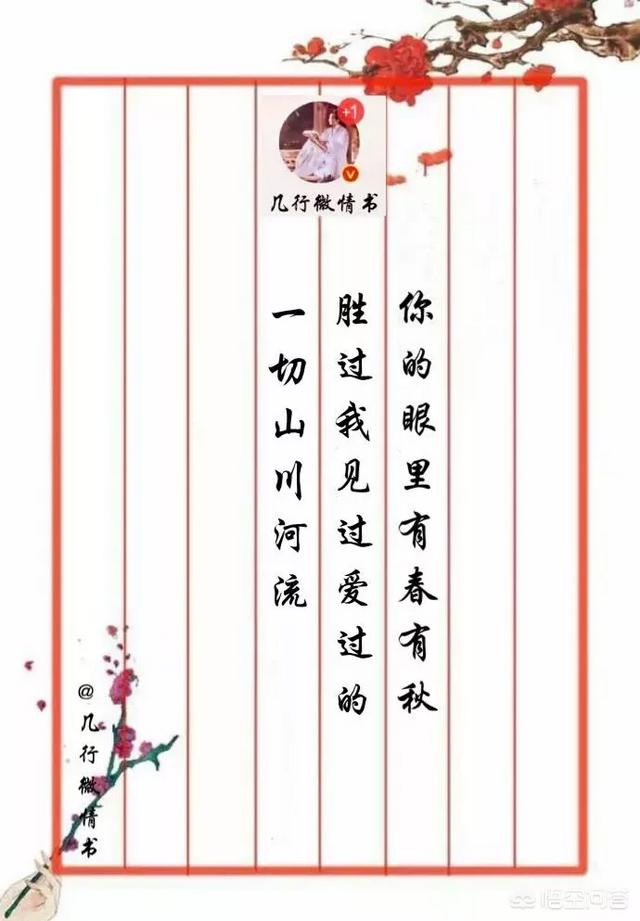 +1
V
几行微情书
你的眼里有春有秋
胜过我见过爱过的
一切山川河流
@几行微情书
悟空问答